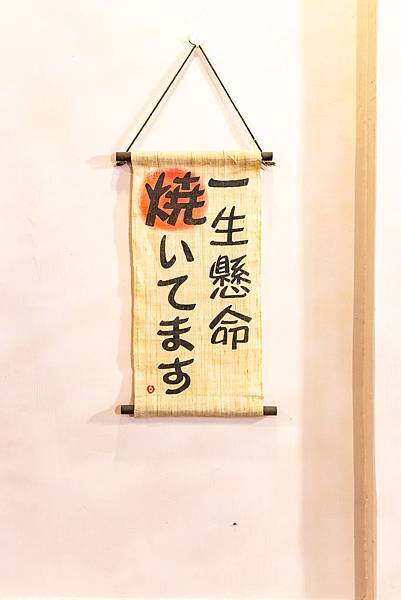 一生懸命
焼いてます